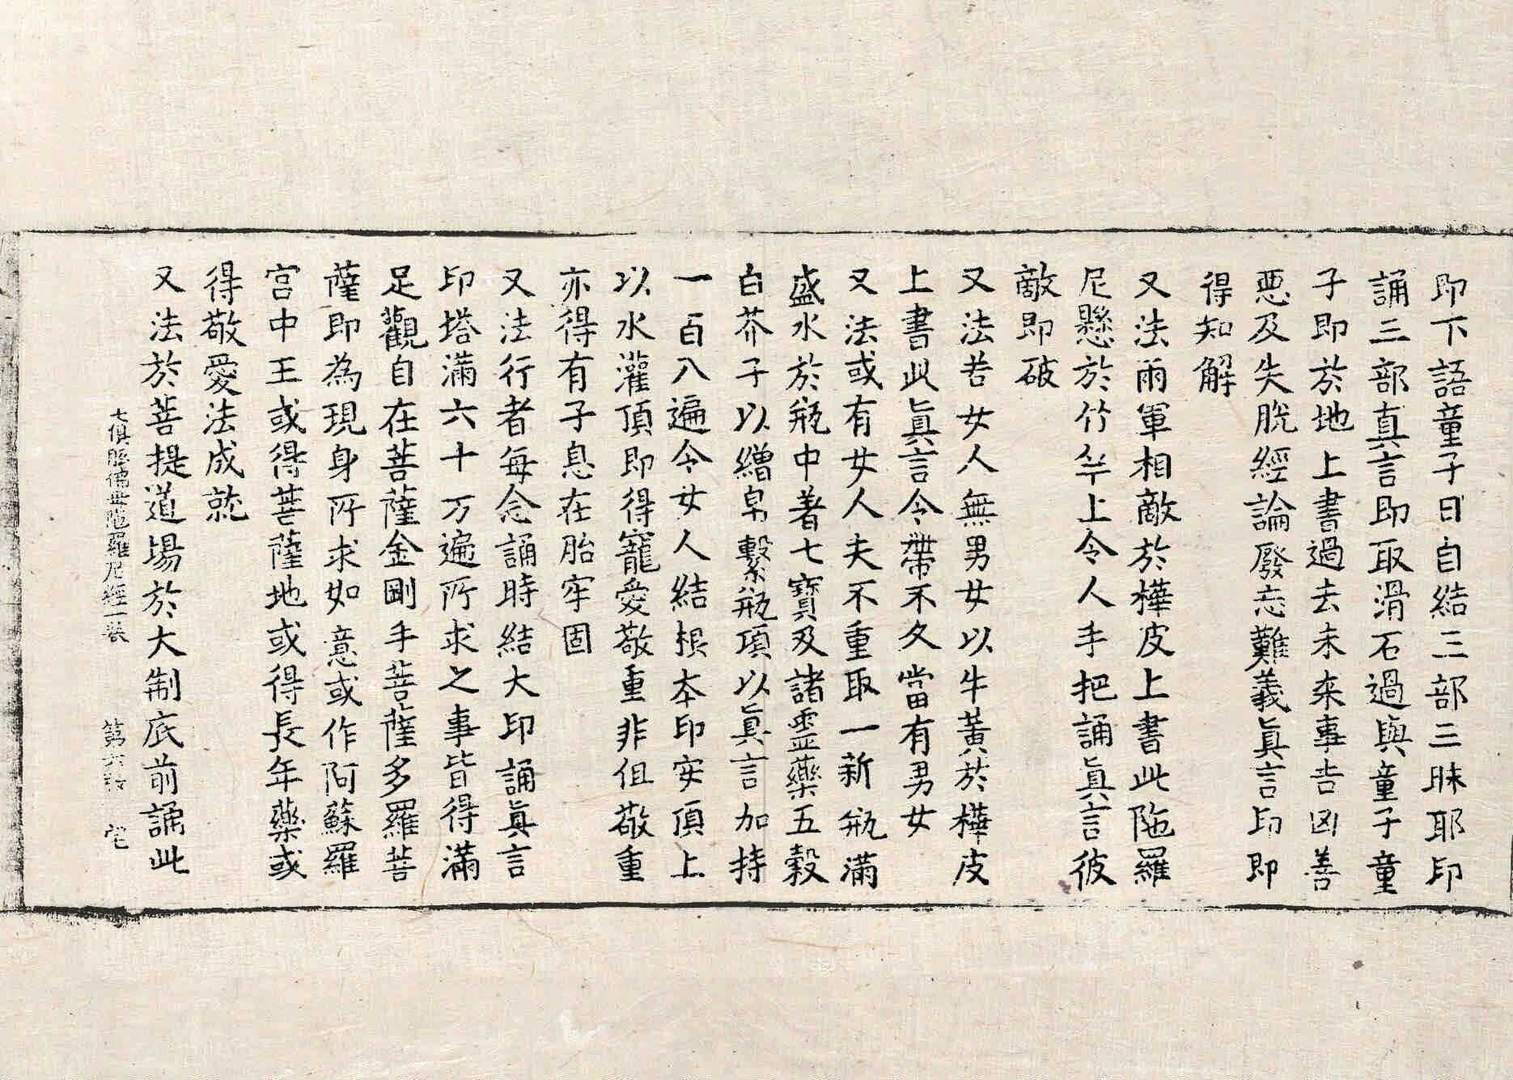 即下語童子曰自結三部三昧耶印
誦三部真言即取滑石過與童子童
子即於地上書過去未來事吉凶善
惡及失脫經論廢忘難義真言印即
得知解
又法雨軍相敵於樺皮上書此陁羅
尼懸於竹竿上令人手把誦真言彼
敵即破
又法若女人無男女以牛黃於樺皮
上書此真言令帶不久當有男女
又法或有女人夫不重取一新瓶滿
盛水於瓶中著七寶及諸靈藥五穀
白芥子以繒帛繫瓶項以真言加持
一百八遍令女人結根本印安頂上
以水灌頂即得寵愛敬重非但敬重
亦得有子息在胎牢固
又法行者每念誦時結大印誦真言
印塔滿六十万遍所求之事皆得滿
足觀自在菩薩金剛手菩薩多羅菩
薩即為現身所求如意或作阿蘇羅
宮中王或得菩薩地或得長年藥或
得敬愛法成就
又法於菩提道場於大制底前誦此
七俱胝佛母陁羅尼經一卷 第六張 宅